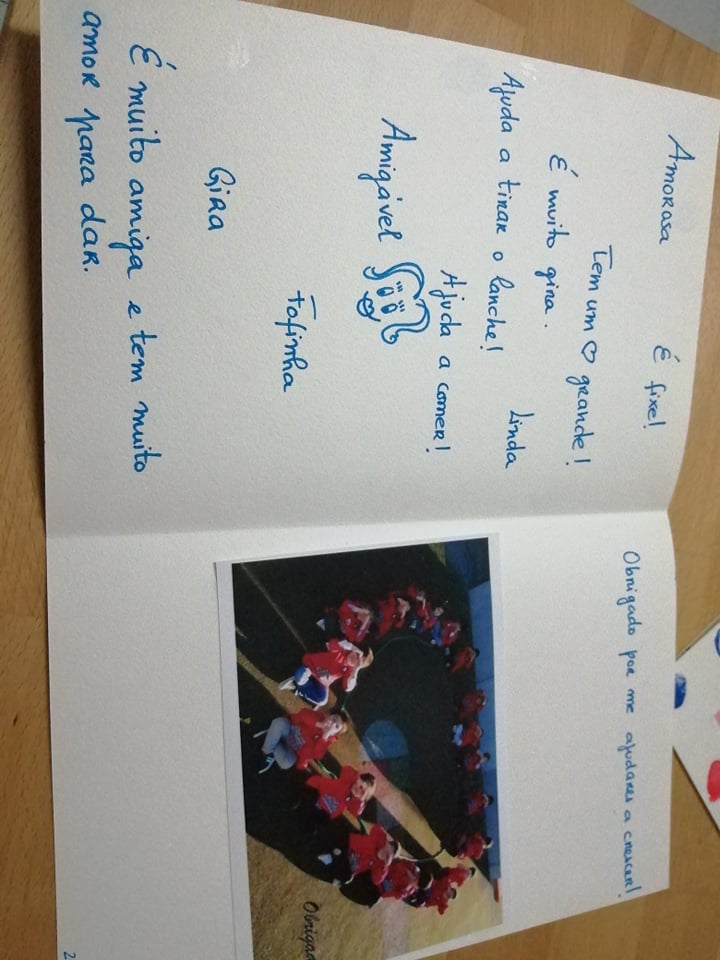 Amorosa
É fixe!
Tem um ♡ grande!
É muito gira.
Linda
Ajuda a tirar o lanche!
Ajuda a comer!
Amigável
Fofinha
Gira
É muito amiga e tem muito
amor para dar.
Obrigado por me ajudares a crescer!
Obrigad
2